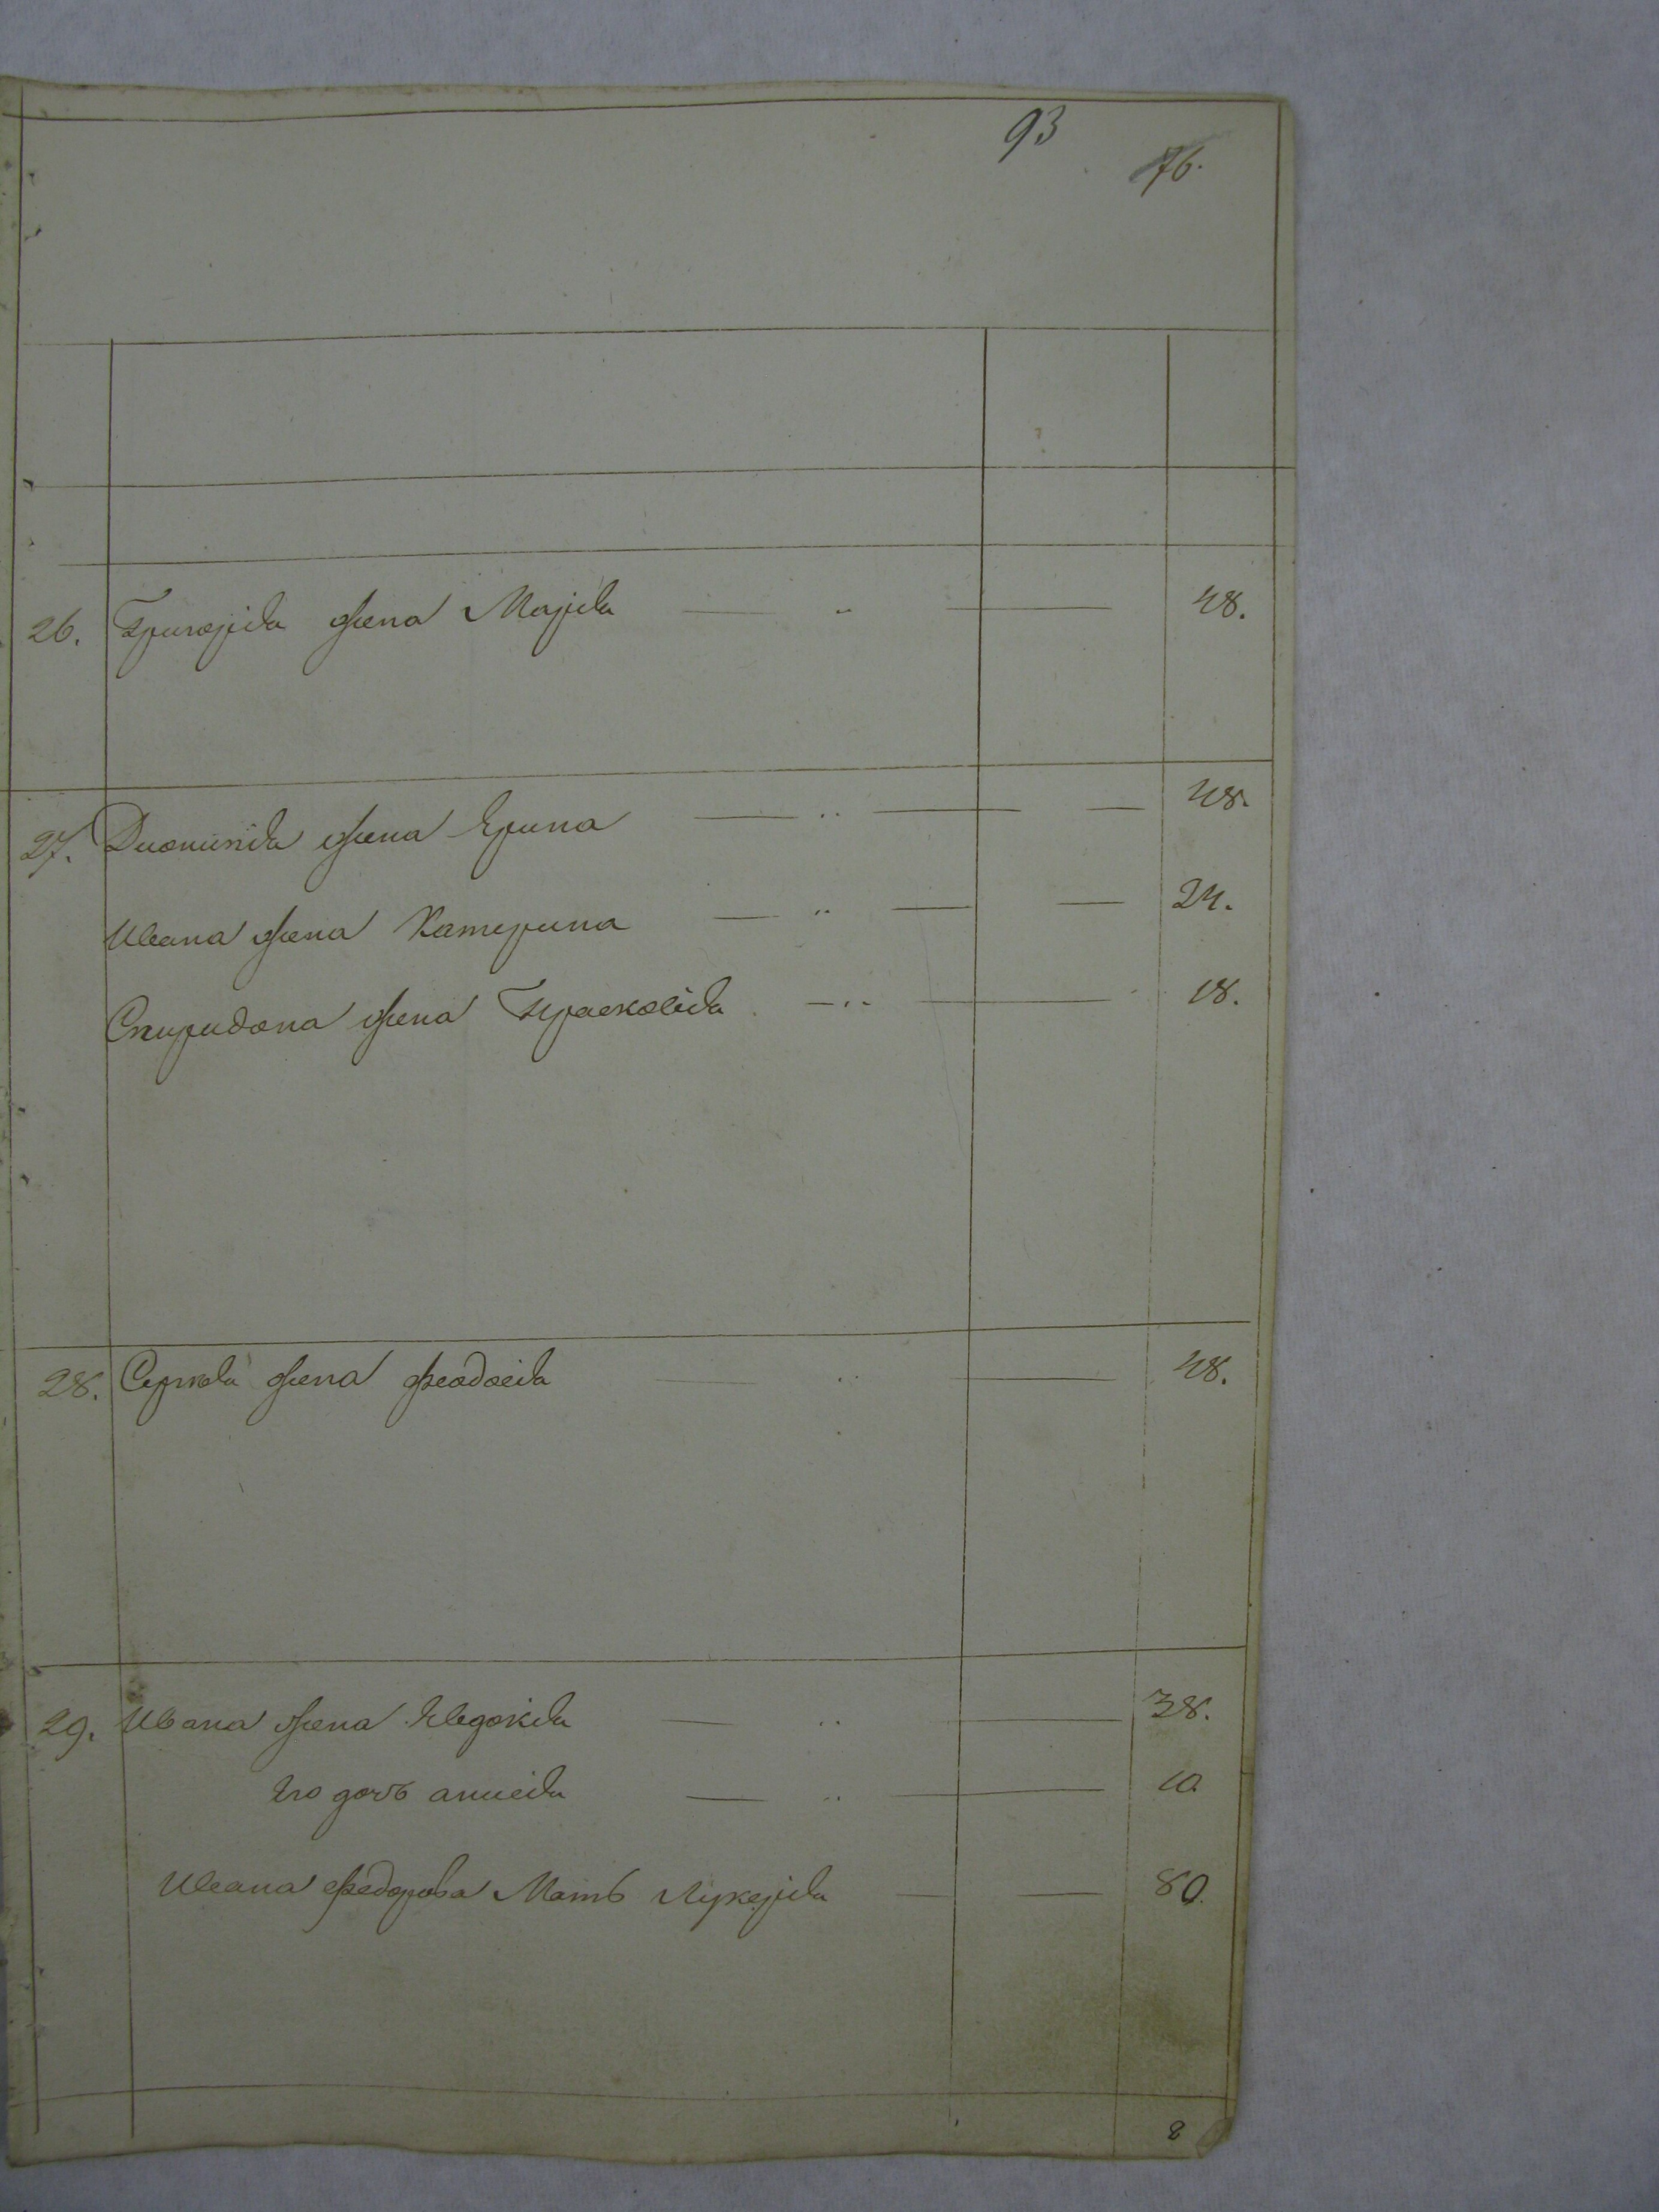 93
76.
26. Григорія жена Марія — „ — 48.
27. Дионисія жена Ерина — „ — — 48.
Ивана жена Катерина — „ — — 24.
Спиридона жена Прасковія — „ — 18.
28. Сергѣя жена Феодосія — „ — 48.
29. Ивана жена Евдокія — „ — 38.
Его дочь анисія — „ — 10.
Ивана Федорова Мать Лукерія — — 80.
8